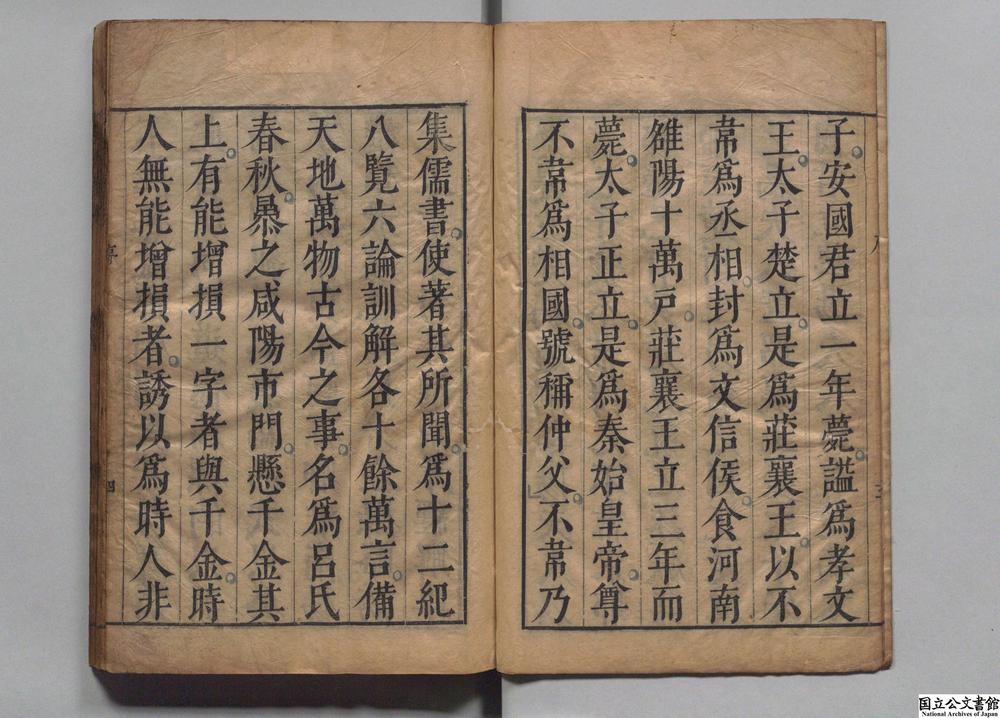 子安國君立一年薨謚爲孝文
王太子楚立是爲莊襄王以不
韋爲丞相封爲文信侯食河南
雒陽十萬戸莊襄王立三年而
薨太子正立是爲秦始皇帝尊
不韋爲相國號稱仲父不韋乃
集儒書使著其所聞爲十二紀
八覽六論訓解各十餘萬言備
天地萬物古今之事名爲呂氏
春秋㬥之咸陽市門懸千金其
上有能增損一字者與千金時
人無能增損者誘以爲時人非
国立公文書館
National Archives of Japan